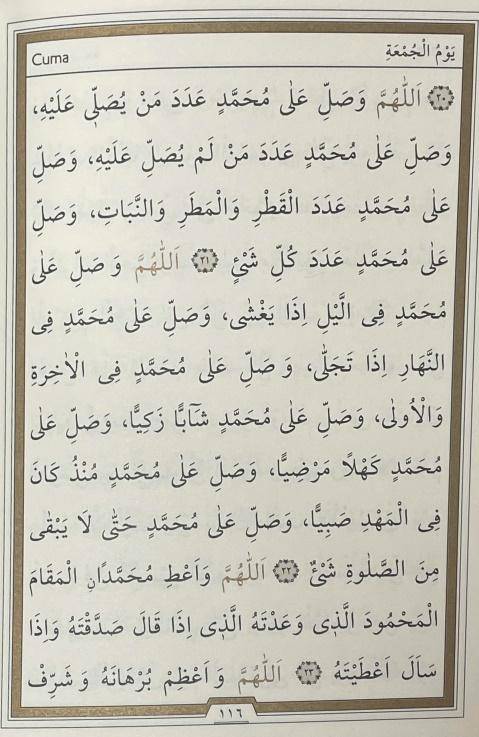 Cuma
يَوْمُ الْجُمْعَةِ
﴿٢٠﴾ اَللّٰهُمَّ وَصَلِّ عَلٰى مُحَمَّدٍ عَدَدَ مَنْ يُصَلّٖى عَلَيْهِ،
وَصَلِّ عَلٰى مُحَمَّدٍ عَدَدَ مَنْ لَمْ يُصَلِّ عَلَيْهِ، وَصَلِّ
عَلٰى مُحَمَّدٍ عَدَدَ الْقَطْرِ وَالْمَطَرِ وَالنَّبَاتِ، وَصَلِّ
عَلٰى مُحَمَّدٍ عَدَدَ كُلِّ شَىْءٍ ﴿٢١﴾ اَللّٰهُمَّ وَ صَلِّ عَلٰى
مُحَمَّدٍ فِى الَّيْلِ اِذَا يَغْشٰى، وَصَلِّ عَلٰى مُحَمَّدٍ فِى
النَّهَارِ اِذَا تَجَلّٰى، وَ صَلِّ عَلٰى مُحَمَّدٍ فِى الْاٰخِرَةِ
وَالْاُولٰى، وَصَلِّ عَلٰى مُحَمَّدٍ شَآبًّا زَكِيًّا، وَصَلِّ عَلٰى
مُحَمَّدٍ كَهْلًا مَرْضِيًّا، وَصَلِّ عَلٰى مُحَمَّدٍ مُنْذُ كَانَ
فِى الْمَهْدِ صَبِيًّا، وَصَلِّ عَلٰى مُحَمَّدٍ حَتّٰى لَا يَبْقٰى
مِنَ الصَّلٰوةِ شَىْءٌ ﴿٢٢﴾ اَللّٰهُمَّ وَاَعْطِ مُحَمَّدًاࣙنِ الْمَقَامَ
الْمَحْمُودَ الَّذٖى وَعَدْتَهُ الَّذٖى اِذَا قَالَ صَدَّقْتَهُ وَاِذَا
سَاَلَ اَعْطَيْتَهُ ﴿٢٣﴾ اَللّٰهُمَّ وَ اَعْظِمْ بُرْهَانَهُ وَ شَرِّفْ
١١٦